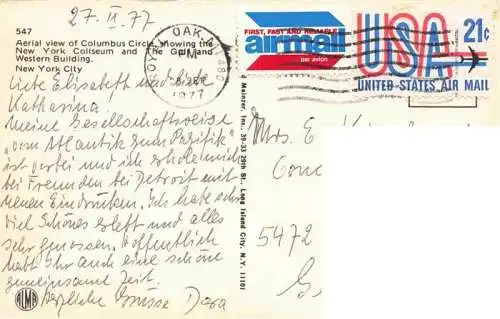 27. IX. 77
547
Aerial view of Columbus Circle, showing the
New York Coliseum and The Gulf and
Western Building.
New York City
Liebe Elisabeth und
Katharina!
Meine Gesellschaftsreise
"vom Atlantik zum Pazifik"
ist vorbei und ich erhole mich
bei Freunden bei Detroit mit
neuen Eindrücken. Ich habe sehr
viel Schönes erlebt und alles
sehr genossen. Hoffentlich
habt Ihr auch eine schöne
gemeinsame Zeit.
Herzliche Grüsse Dora
ALMA
ROYAL OAK
PM
28 SEP
1977
480
FIRST, FAST AND RELIABLE
airmail
par avion
USA 21¢
UNITED STATES AIR MAIL
Mainzer, Inc., 39-33 29th St., Long Island City, N.Y. 11101
Mrs. E
Conc
5472
G